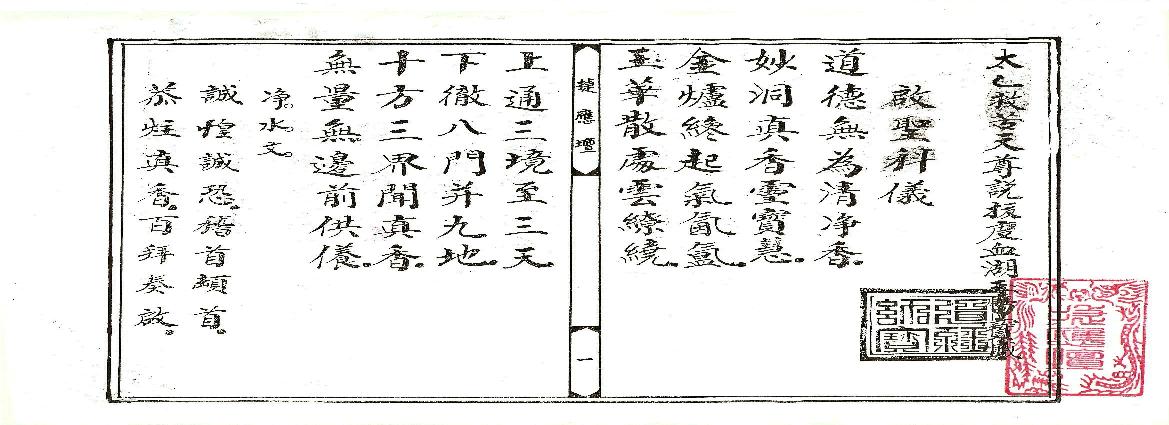 太乙救苦天尊說拔度血湖
啟聖科儀
道德無為清净香。
妙洞真香靈寶慧。
金爐纔起氣氤氳。
玉華散處雲繚繞。
捷應壇
一
上通三境至三天
下徹八門并九地。
十方三界聞真香。
無量無邊前供養。
净水文。
誠惶誠恐。稽首頓首。
恭炷真香。百拜奏啟。